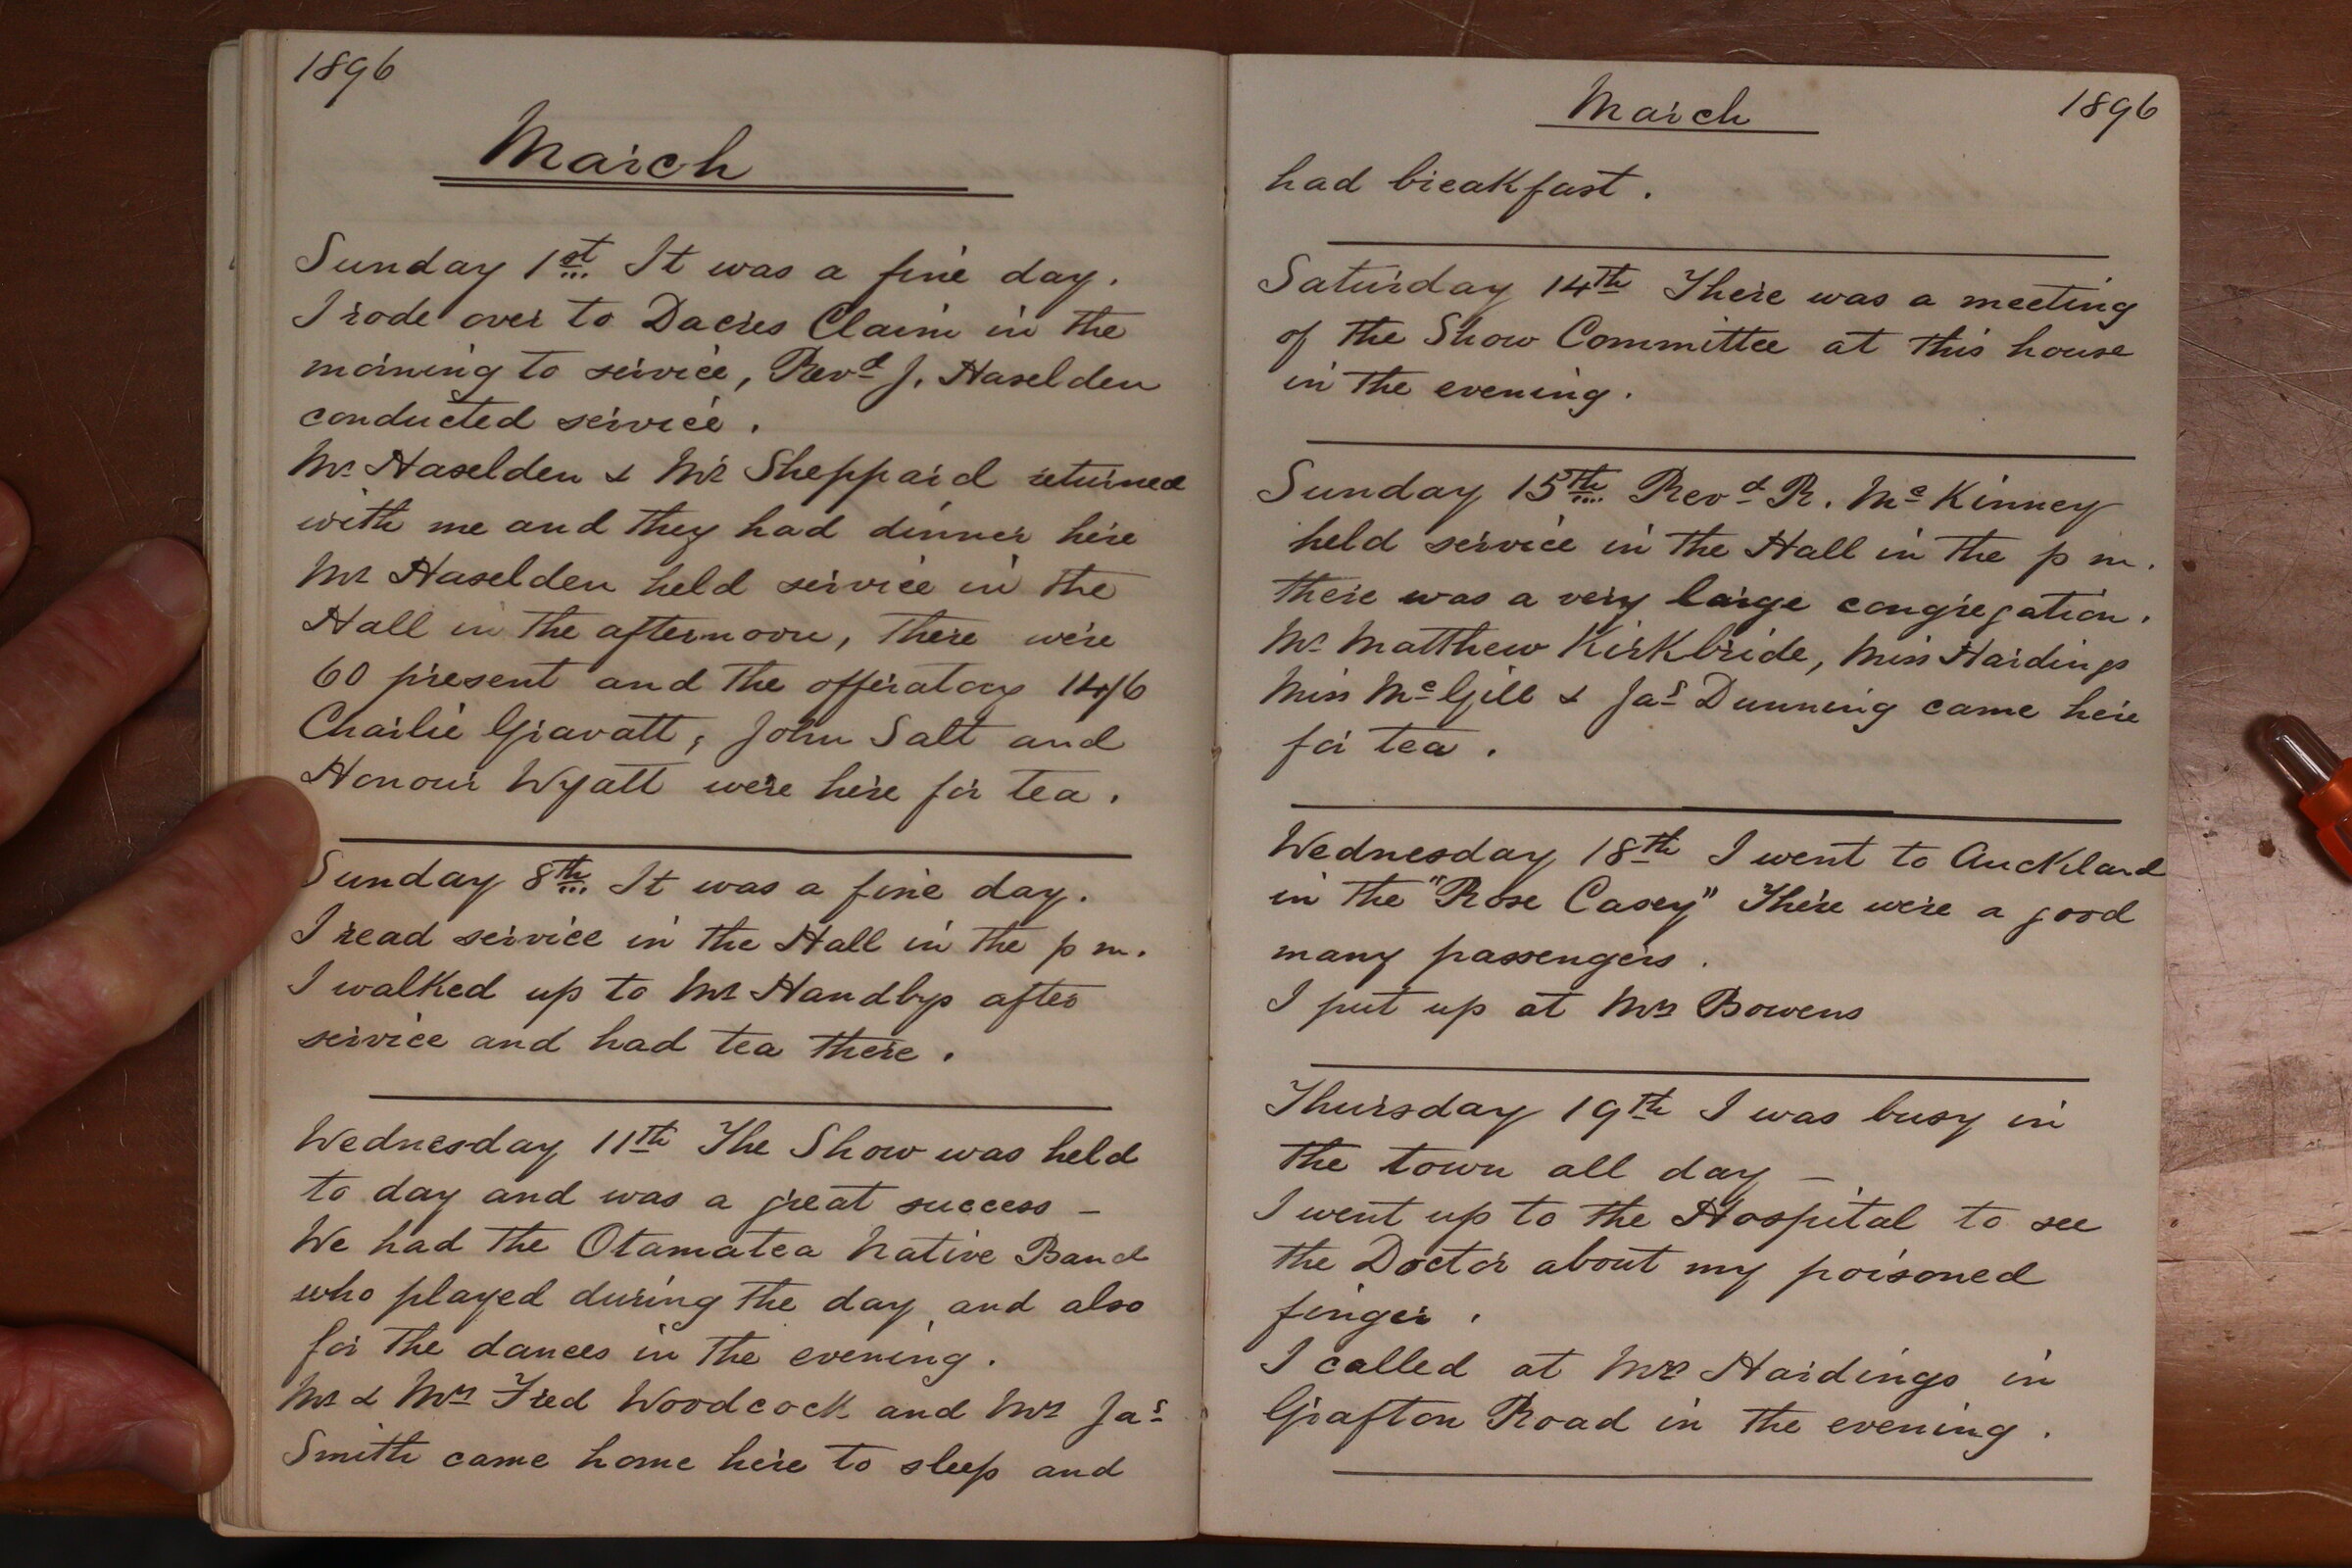 1896
March
Sunday 1st It was a fine day.
I rode over to Dacres Claim in the
morning to service, Revd J. Haselden
conducted service.
Mr Haselden & Mr Sheppard returned
with me and they had dinner here
Mr Haselden held service in the
Hall in the afternoon, there were
60 present and the offeratory 14/6
Charlie Gravatt, John Salt and
Honour Wyatt were here for tea.
Sunday 8th It was a fine day.
I read service in the Hall in the p m.
I walked up to Mr Handbys after
service and had tea there.
Wednesday 11th The Show was held
to day and was a great success –
We had the Otamatea Native Band
who played during the day, and also
for the dances in the evening.
Mr & Mrs Fred Woodcock and Mr Jas
Smith came home here to sleep and
March
1896
had breakfast.
Saturday 14th There was a meeting
of the Show Committee at this house
in the evening.
Sunday 15th Revd R. Mc Kinney
held service in the Hall in the p m.
there was a very large congregation.
Mr Matthew Kirkbride, Miss Hardings
Miss McGill & Jas Dunning came here
for tea.
Wednesday 18th I went to Auckland
in the "Rose Casey" There were a good
many passengers.
I put up at Mrs Bowens
Thursday 19th I was busy in
the town all day –
I went up to the Hospital to see
the Doctor about my poisoned
finger.
I called at Mrs Hardings in
Grafton Road in the evening.